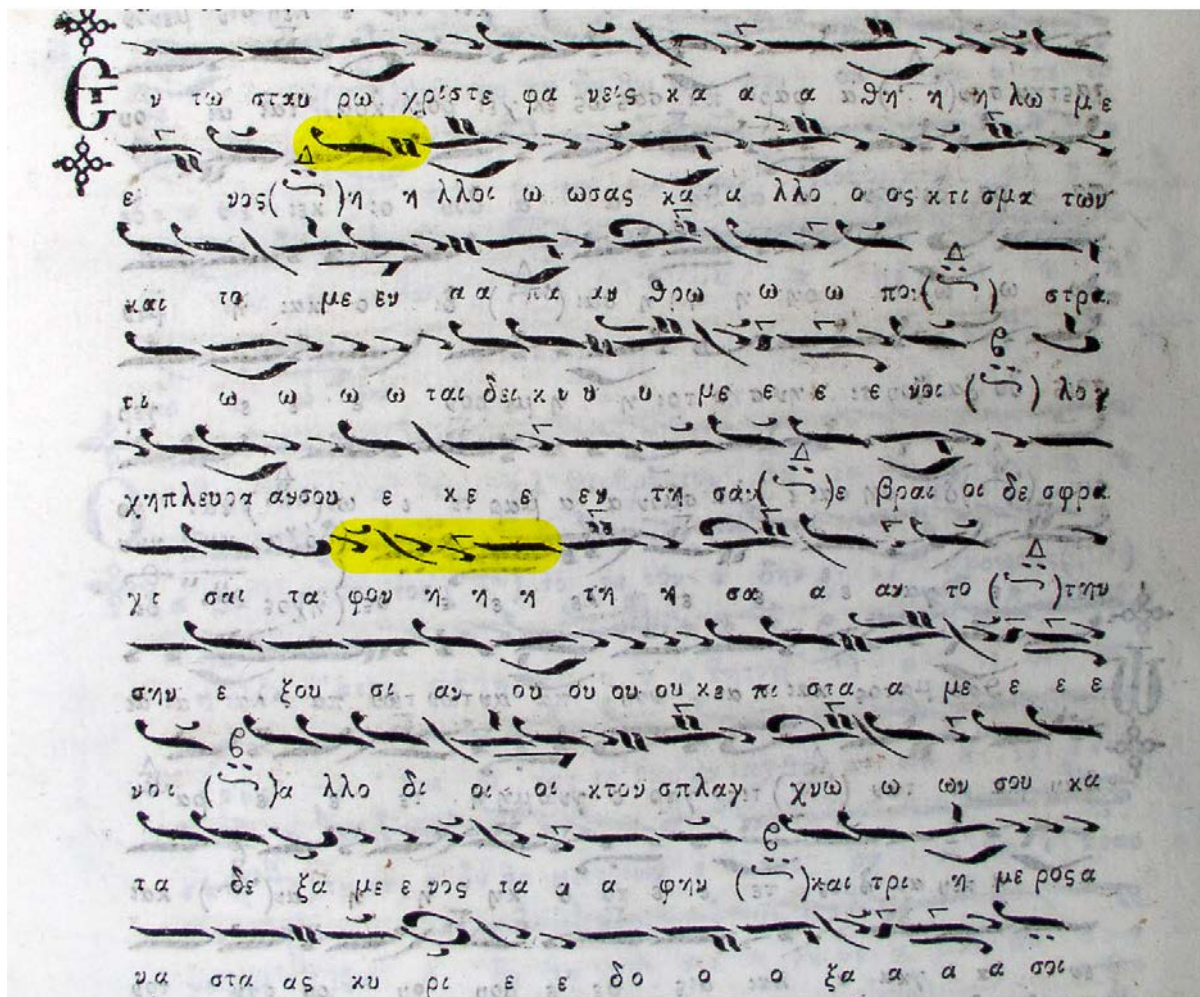 Εν τω σταυ ρω χρισ τε φα νεις κ α α α θη η η λω με
ε νος (Δ) η η λλοι ω ωσας κα α λλο ο ος κτι σμα των
και το με εν α α πα αν θρω ω ω ποι (Δ) στρα
τι ω ω ω ω ται δει κνυ υ υ με ε ε ε νοι ( ) λογ
χη πλευρα αν σου ε κε ε εν τη σαν (Δ) ε βραι οι δε σφρα
γι σαι τα φον η η η τη η σα α αν το (Δ) την
σην ε ξου σι αν ου ου ου ου κε πι στα α με ε ε ε
νοι ( ) α λλο δι οι οι κτον σπλαγ χνω ω ων σου κα
τα δε ξα με ε νος τα α α φην ( ) και τρι η με ρος α
να στα ας κυ ρι ε ε δο ο ο ξα α α α σοι